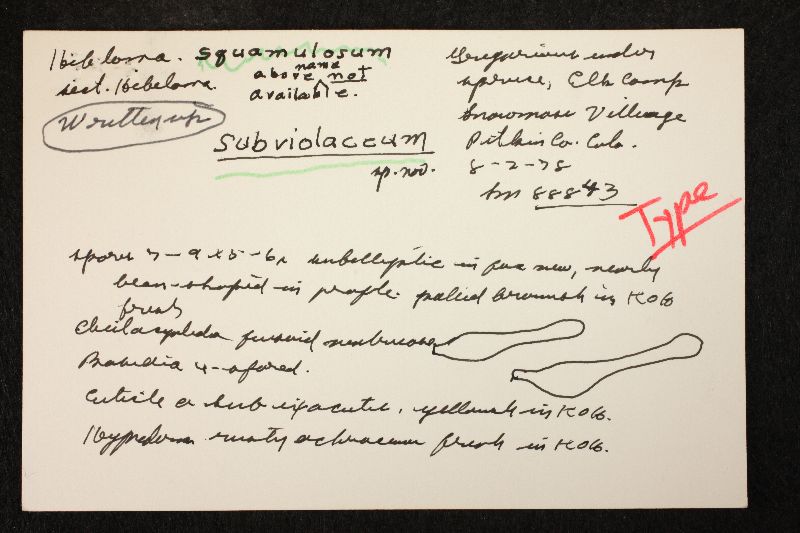 Hebeloma. squamulosum
sect. Hebeloma.
above name not
available.
Written up
subviolaceum
sp. nov.
Gregarious under
spruce, Elk Camp
Snowmass Village
Pitkin Co. Colo.
8-2-78
Sm 88843
Type
spores 7-9 x 5-6µ subelliptic in face view, nearly
bean-shaped in profile. pallid brownish in KOH
fresh
Cheilocystidia fusoid ventricose
Basidia 4-spored.
Cuticle a ixocutis, yellowish in KOH.
Hypoderm rusty ochraceous fresh in KOH.